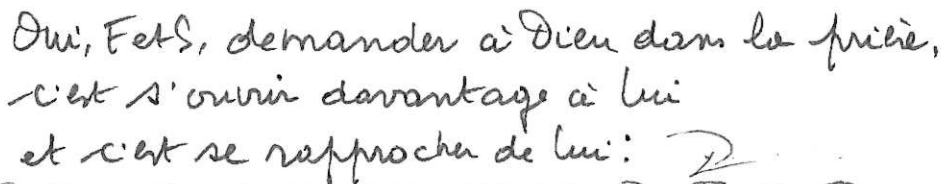 Oui, F et S, demander à Dieu dans la prière,
c'est s'ouvrir davantage à lui
et c'est se rapprocher de lui :